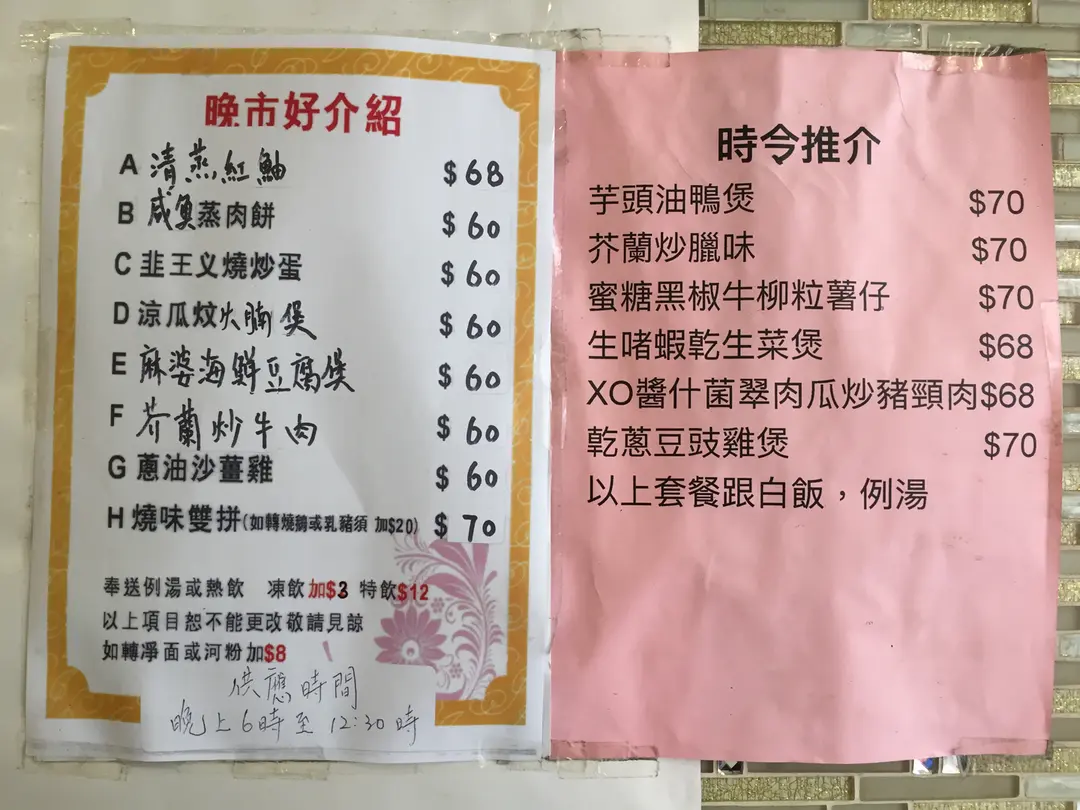 晚市好介紹
A 清蒸紅鮋 $68
B 咸魚蒸肉餅 $60
C 韭王义燒炒蛋 $60
D 涼瓜炆火腩煲 $60
E 麻婆海鮮豆腐煲 $60
F 芥蘭炒牛肉 $60
G 蔥油沙薑雞 $60
H 燒味雙拼(如轉燒鵝或乳豬須 加$20) $70
奉送例湯或熱飲 凍飲加$3 特飲$12
以上項目恕不能更改敬請見諒
如轉凈面或河粉加$8
供應時間
晚上6時至12:30時
時令推介
芋頭油鴨煲 $70
芥蘭炒臘味 $70
蜜糖黑椒牛柳粒薯仔 $70
生啫蝦乾生菜煲 $68
XO醬什菌翠肉瓜炒豬頸肉$68
乾蔥豆豉雞煲 $70
以上套餐跟白飯，例湯